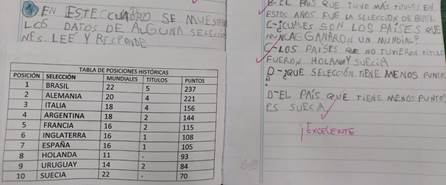 EN ESTE CUADRO SE MUESTR
LOS DATOS DE ALGUNA SELECCIO
NES. LEE Y RESPONDE
TABLA DE POSICIONES HISTÓRICAS
POSICIÓN SELECCIÓN MUNDIALES TITULOS PUNTOS
1 BRASIL 22 5 237
2 ALEMANIA 20 4 221
3 ITALIA 18 4 156
4 ARGENTINA 18 2 144
5 FRANCIA 16 2 115
6 INGLATERRA 16 1 108
7 ESPAÑA 16 1 105
8 HOLANDA 11 - 93
9 URUGUAY 14 2 84
10 SUECIA 22 - 70
B-EL PAÍS QUE TUVO MÁS TITULOS EN
ESTOS AÑOS FUE LA SELECCIÓN DE BRASIL
C-¿CUALES SON LOS PAÍSES QUE
NUNCA GANARON UN MUNDIAL?
C-LOS PAÍSES QUE NO TUVIERON TITULOS
FUERON HOLANDA Y SUECIA
D-¿QUE SELECCIÓN TIENE MENOS PUNTOS
D-EL PAÍS QUE TIENE MENOS PUNTOS
ES SUECIA
¡EXCELENTE